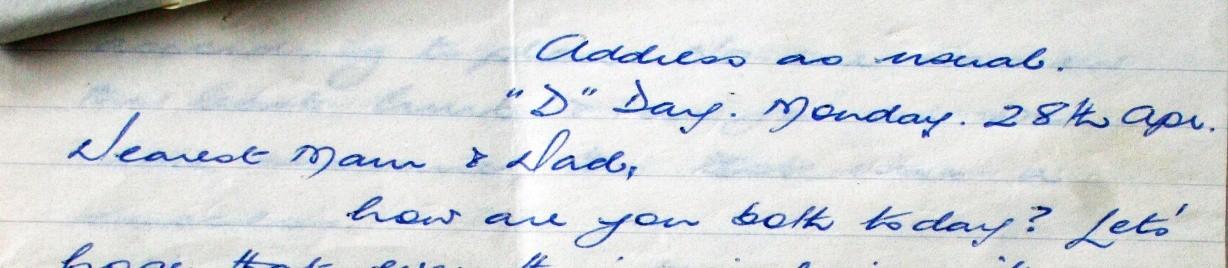 Address as usual.
"D" Day. Monday. 28th Apr.
Dearest Mam & Dad,
how are you both today? Let's
hope that